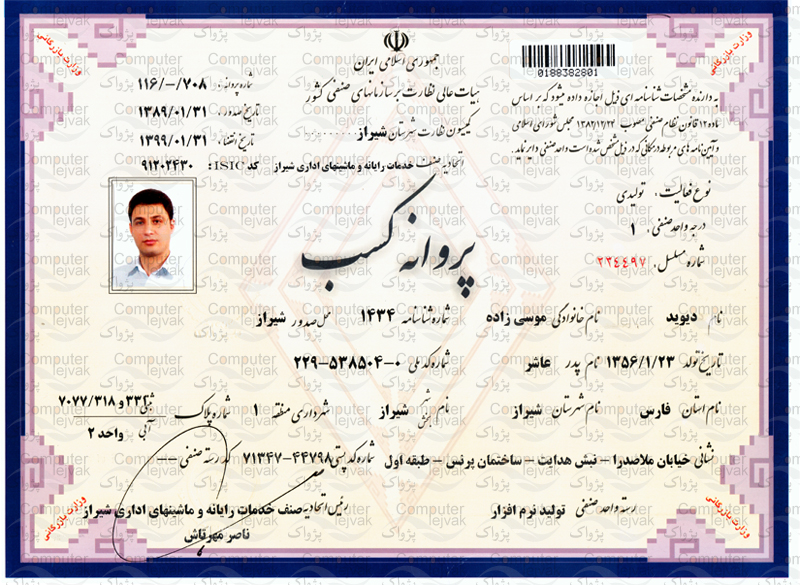 جمهوری اسلامی ایران
هیات عالی نظارت بر سازمانهای صنفی کشور
کمیسیون نظارت شهرستان شیراز
اتحادیه صنف خدمات رایانه و ماشینهای اداری شیراز
0188382801
به دارنده مشخصات شناسنامه ای ذیل اجازه داده میشود که بر اساس
ماده ۱۲ قانون نظام صنفی مصوب ۱۳۸۲/۱۲/۲۴ مجلس شورای اسلامی
و آیین نامه های مربوطه در مکانی که در ذیل مشخص شده است واحد صنفی دایر نماید.
شماره پروانه: ۱۱۶/-/۷۰۸
تاریخ صدور: ۱۳۸۹/۰۱/۳۱
تاریخ انقضاء: ۱۳۹۹/۰۱/۳۱
کد ISIC: ۹۱۲۰۲۴۳۰
نوع فعالیت: تولیدی
درجه واحد صنفی: ۱
شماره مسلسل: ۲۳٤٤۹۷
پروانه کسب
نام دیوید نام خانوادگی موسی زاده شماره شناسنامه ۱۴۳۴ محل صدور شیراز
تاریخ تولد ۱۳۵۶/۱/۲۳ نام پدر عاشر شماره کد ملی ۲۲۹-۵۳۸۵۰۴-۰
نام استان فارس نام شهرستان شیراز نام شهر بخش شیراز شهرداری منطقه ۱ شماره پلاک ثبتی ۳۳۲ و ۷۰۷۷/۳۱۸
آبی واحد ۲
نشانی خیابان ملاصدرا - نبش هدایت - ساختمان پرنس - طبقه اول شماره کد پستی ۷۱۳۴۷-۴۴۷۹۸ کد رسته صنفی --
رسته واحد صنفی تولید نرم افزار رئیس اتحادیه صنف خدمات رایانه و ماشینهای اداری شیراز
ناصر مهرتاش
وزارت بازرگانی
وزارت بازرگانی
وزارت بازرگانی
وزارت بازرگانی
Computer
پژواک Pejvak